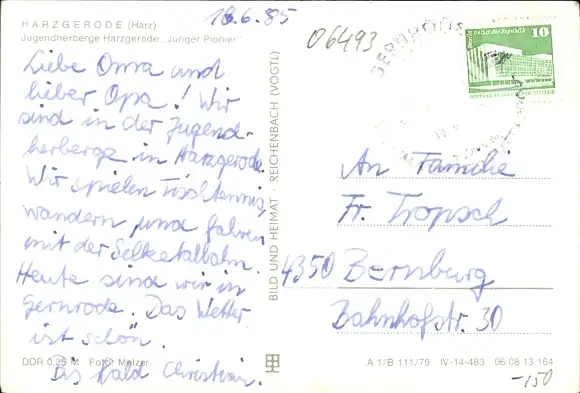 18.6.85
06493
HARZGERODE (Harz)
Jugendherberge Harzgerode „Junger Pionier"
Liebe Oma und
lieber Opa! Wir
sind in der Jugend-
herberge in Harzgerode.
Wir spielen Tischtennis,
wandern und fahren
mit der Selketalbahn.
Heute sind wir in
Gernrode. Das Wetter
ist schön.
Bis bald Christian.
DDR 0,25 M Foto: Melzer
BILD UND HEIMAT · REICHENBACH (VOGTL)
GERNRODE
10
An Familie
Fr. Tropsch
4350 Bernburg
Bahnhofstr. 30
A 1/B 111/79 IV-14-483 06 08 13 164
-150